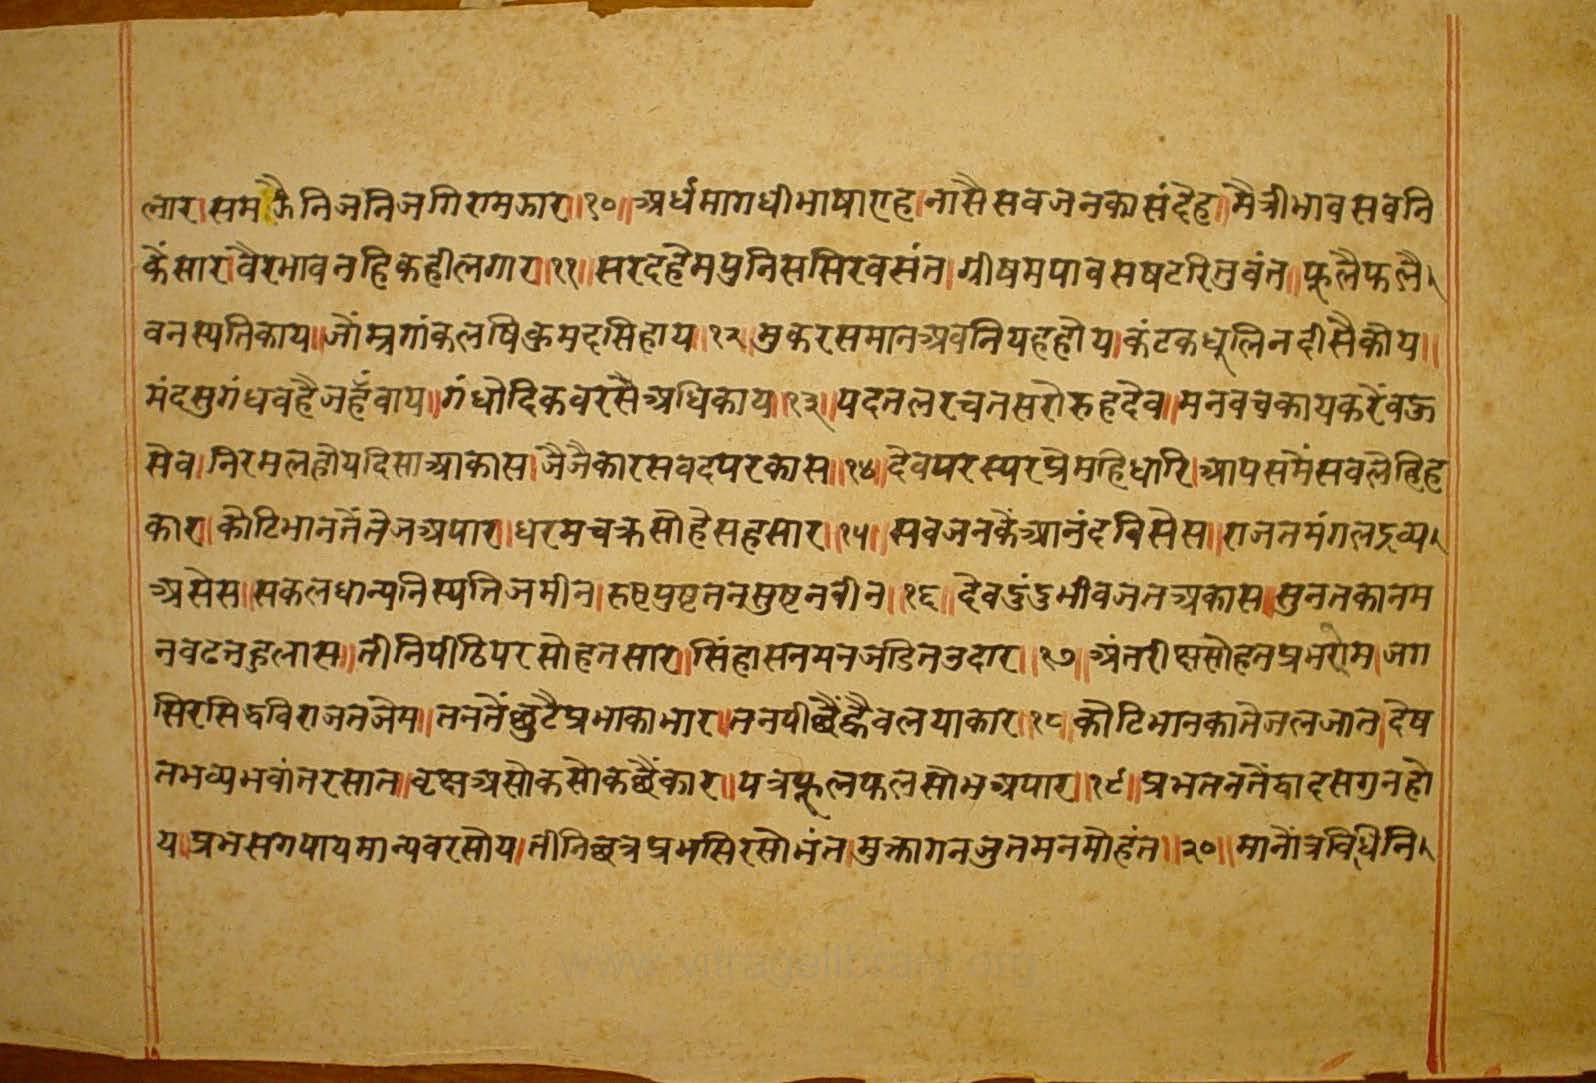 लार।समझै निजनिजगिरामझार॥१०॥अर्धमागधीभाषाएह।नासै सवजनका संदेह॥मैत्रीभाव सवनि
कें सार।वैरभाव नहि कही लगार॥११॥सरद हेम पुनि ससिर वसंत।ग्रीषम पावस षट रितुवंत॥फूलै फलै
वनस्पतिकाय॥जों म्रगांक लषि कुमद सिहाय॥१२॥मुकर समान अवनि यह होय।कंटक धूलि न दीसै कोय॥
मंद सुगंध वहै जहँ वाय॥गंधोदिक वरसै अधिकाय॥१३॥पदतल रचत सरोरुह देव॥मन वच काय करें वऊ
सेव।निरमल होय दिसा आकास।जै जैकार सवद परकास॥१४॥देव परस्पर प्रेम हि धारि।आपसमें सवले हि ह
कार।कोटि भानतें तेज अपार।धरमचक्र सोहै सहसार॥१५॥सव जनकें आनंद विसेस॥राजत मंगल द्रव्य
असेस॥सकल धान्य निस्पति जमीन।रुष्ट पुष्ट तन सुष्ट नवीन॥१६॥देव दुंदुभी वजत अकास॥सुनत कान म
न वढत हुलास॥तीनि पीठि पर सोहत सार॥सिंहासन मनजडित उदार॥१७॥अंतरीक्ष सोहत प्रभ रोम।जग
सिर सिद्ध विराजत जेम॥तनतें छुटै प्रभा का भार॥तन पीछैं ह्वै वलयाकार॥१८॥कोटि भान का तेज लजात।देष
त भव्य भवांतर सात॥वृक्ष असोक सोक छैंकार॥पत्र फूल फल सोभ अपार॥१९॥प्रभ तनतें द्वादस गुन हो
य।प्रभ सग पाय मान्यवर सोय।तीनि छत्र प्रभ सिर सोभंत।मुक्तागन जुत मन मोहंत॥२०॥मानोंत्र विधि नि
www.vitragelibrary.org